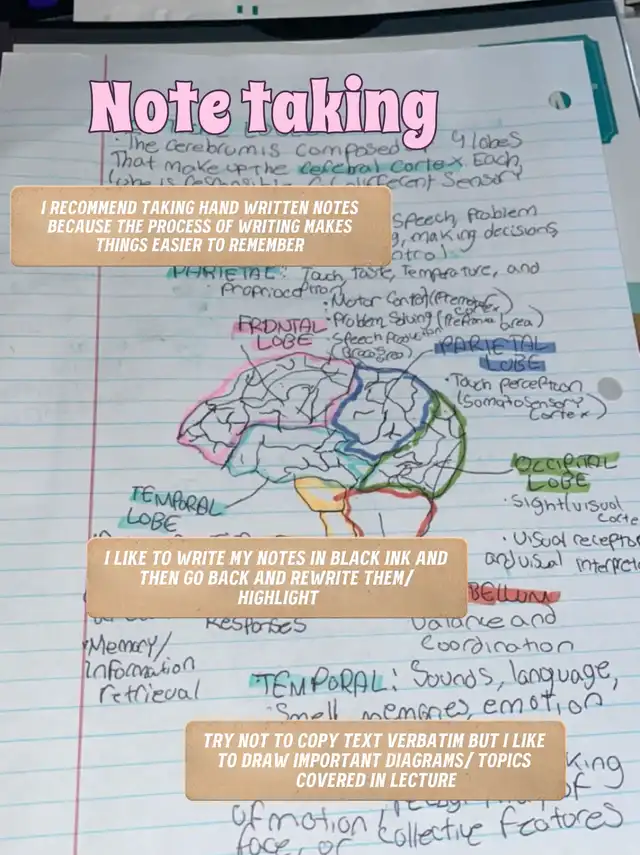 Note taking
· The cerebrum is composed 4 lobes
That make up the cerebral cortex. Each
lobe is responsible different Sensory
I RECOMMEND TAKING HAND WRITTEN NOTES
BECAUSE THE PROCESS OF WRITING MAKES
THINGS EASIER TO REMEMBER
Speech, Problem
making decisions,
PARIETAL: Touch, taste, Temperature, and
Proprioception
· Motor Control (Premotor
Cortex)
· Problem Solving (Prefrontal area)
· Speech Production
(Brocas area)
FRONTAL
LOBE
PARIETAL
LOBE
· Touch perception
(SomatoSensory
Cortex)
OCCIPITAL
LOBE
· Sight/visual
Corte
· Visual receptor
and visual interpreta
TEMPORAL
LOBE
I LIKE TO WRITE MY NOTES IN BLACK INK AND
THEN GO BACK AND REWRITE THEM/
HIGHLIGHT
BELLUM
Responses
balance and
Coordination
Memory/
information
retrieval
TEMPORAL: Sounds, language,
Smell, memories, emotion
TRY NOT TO COPY TEXT VERBATIM BUT I LIKE
TO DRAW IMPORTANT DIAGRAMS/ TOPICS
COVERED IN LECTURE
king
of
of motion,
face, or collective features